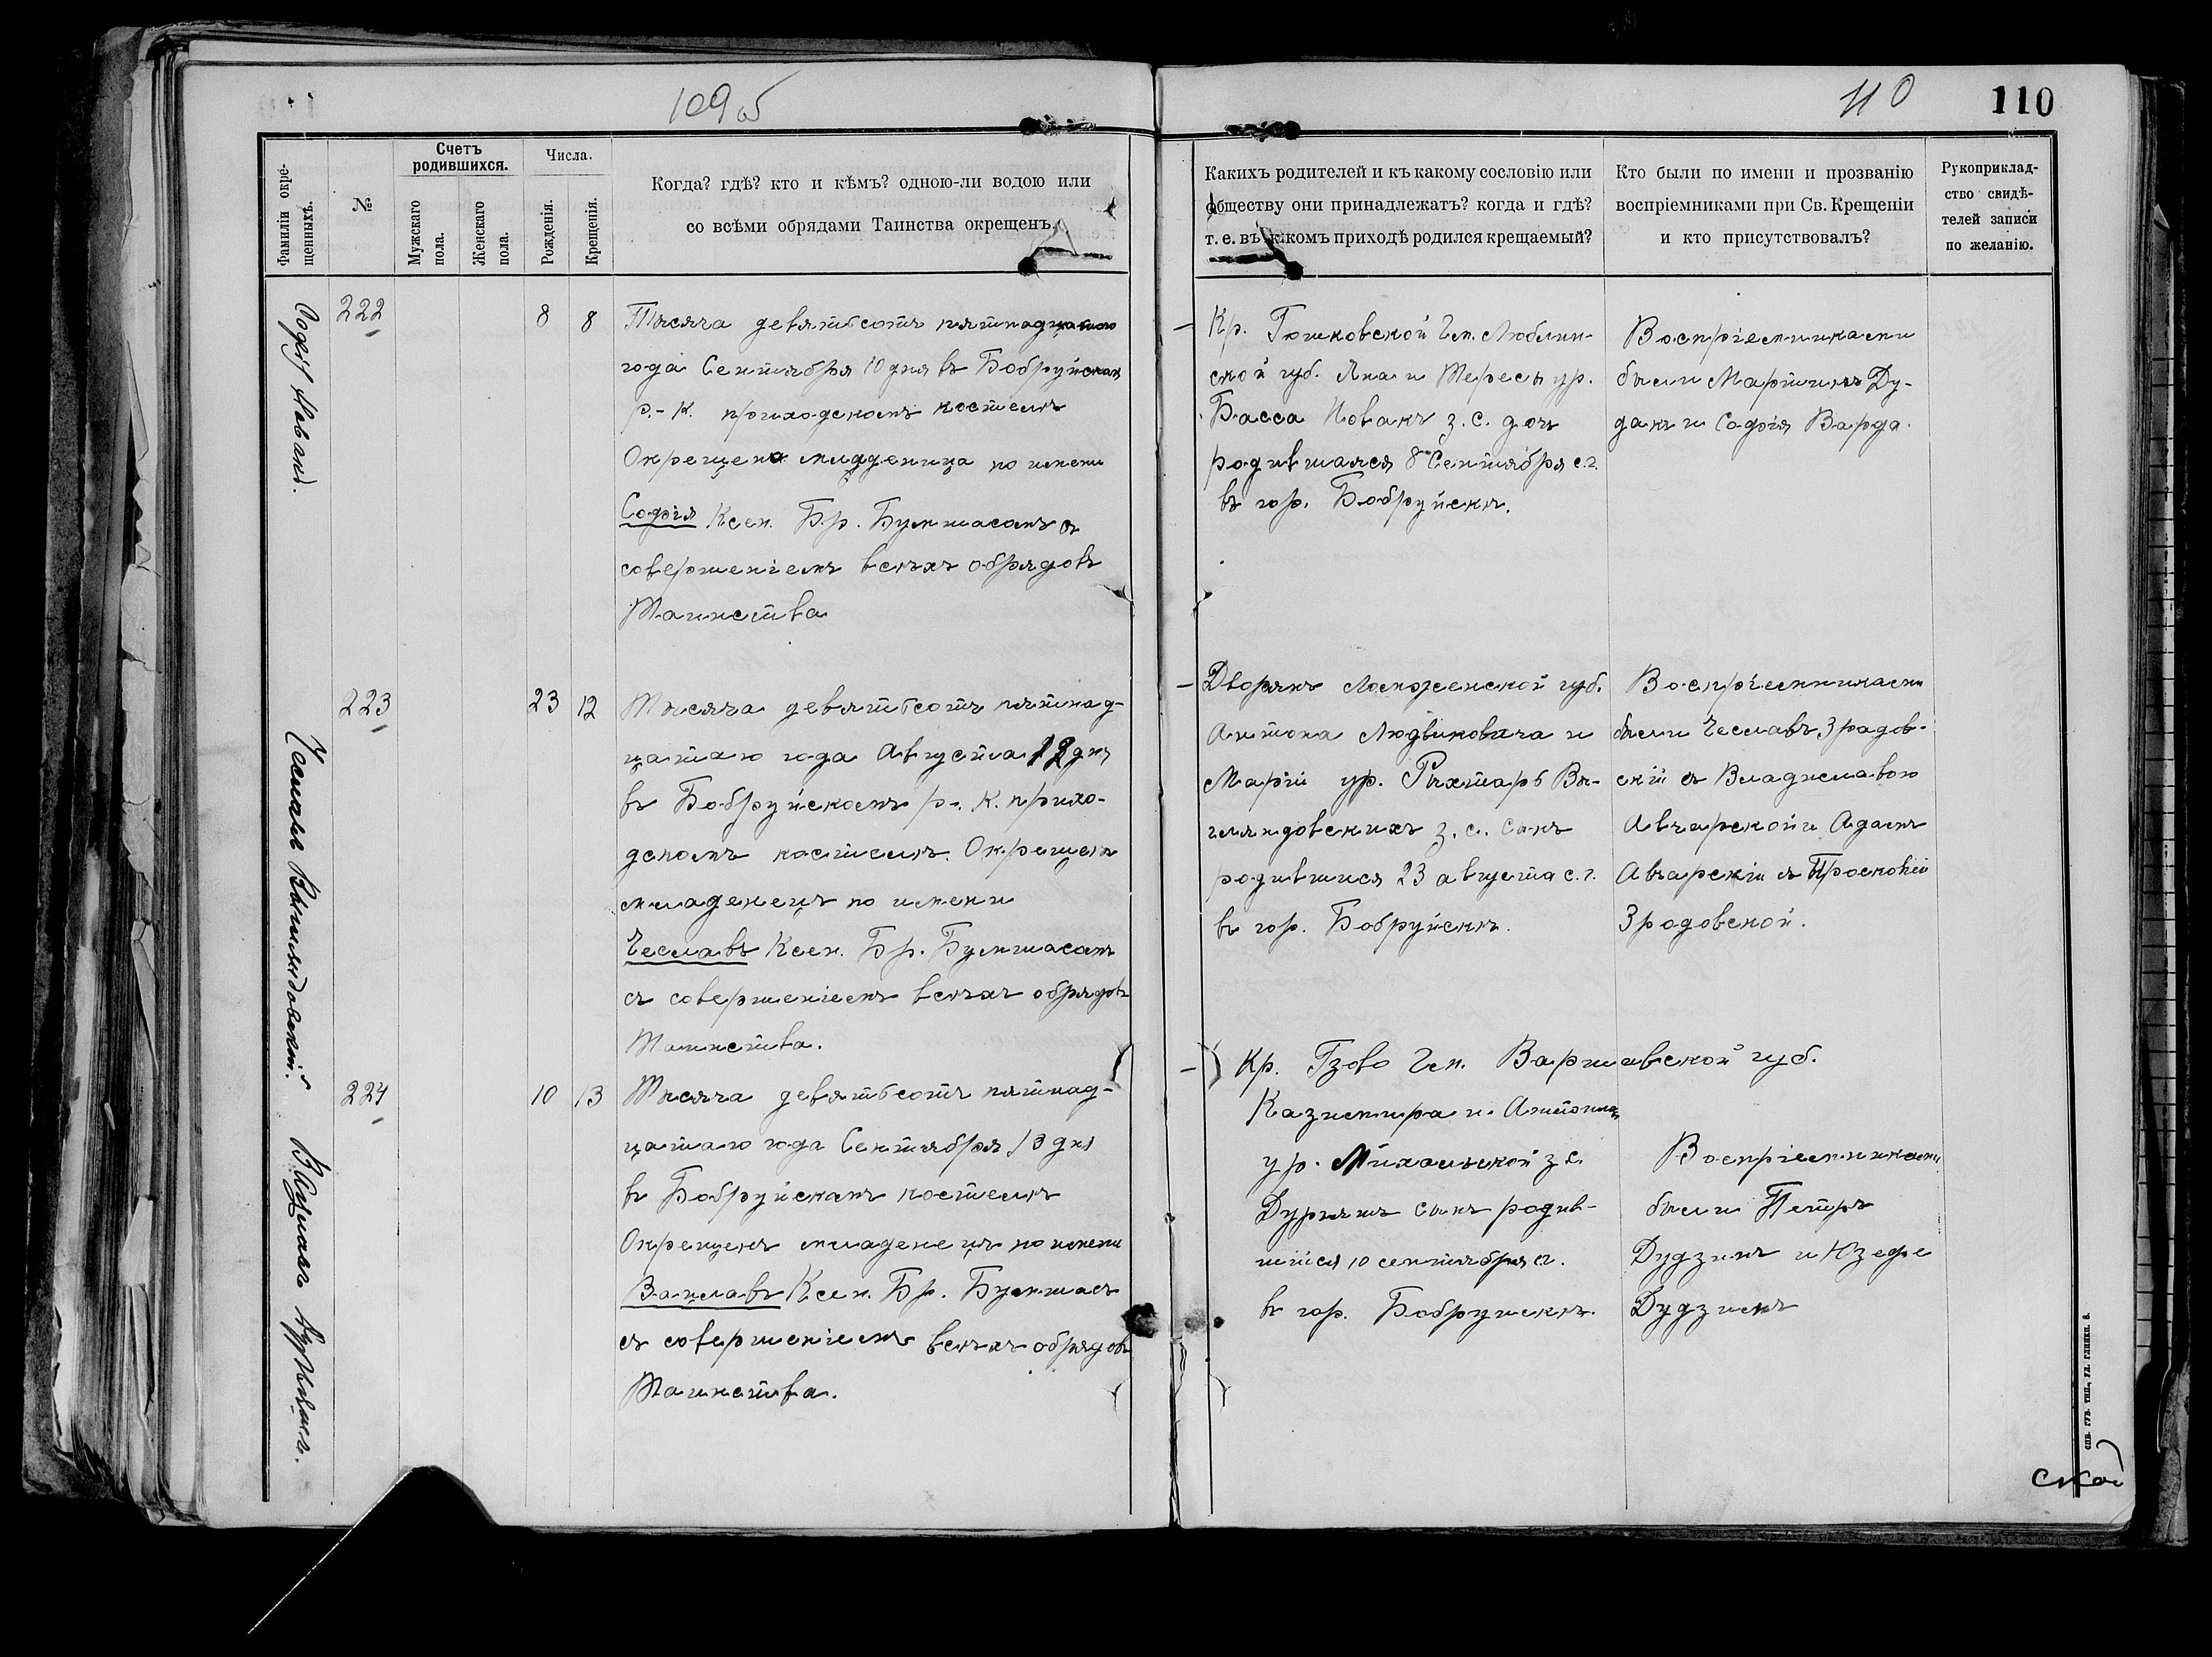 109 об
110
110
Фамилiи окре-
щенныхъ.
№
Счетъ
родившихся.
Мужскаго
пола.
Женскаго
пола.
Числа.
Рожденiя.
Крещенiя.
Когда? гдѣ? кто и кѣмъ? одною-ли водою или
со всѣми обрядами Таинства окрещенъ.
Какихъ родителей и къ какому сословiю или
обществу они принадлежатъ? когда и гдѣ?
т. е. въ какомъ приходѣ родился крещаемый?
Кто были по имени и прозванiю
воспрiемниками при Св. Крещенiи
и кто присутствовалъ?
Рукоприклад-
ство свидѣ-
телей записи
по желанiю.
Софія Новакъ.
222
8
8
Тысяча девятьсотъ пятнадцатаго
года Сентября 10 дня въ Бобруйскомъ
р.-к. приходскомъ костелѣ
Окрещена младеница по имени
Софія Ксен. Бр. Бумшасомъ съ
совершеніемъ всѣхъ обрядовъ
Таинства
Кр. Гошковской Гм. Люблин-
ской губ. Яна и Тересы ур.
Басса Новакъ з. с. дочь
родившаяся 8 Сентября с. г.
въ гор. Бобруйскѣ.
Воспріемниками
были Мартинъ Ду-
дакъ и Софія Варда.
Чеславъ
223
23
12
Тысяча девятьсотъ пятнад-
цатаго года Августа 12 дня
въ Бобруйскомъ р.-к. прихо-
дскомъ костелѣ. Окрещенъ
младенецъ по имени
Чеславъ Ксен. Бр. Бумшасомъ
съ совершеніемъ всѣхъ обрядовъ
Таинства.
Дворянъ Ломженской губ.
Антона Людвиковича и
Маріи ур. Рыхтаръ Вы-
родившійся 23 августа с. г.
въ гор. Бобруйскѣ.
Воспріемниками
были Чеславъ Зрадов-
скій съ Владиславою
Авчарской и Адамъ
Авчарскій съ Просковіей
Зродовской.
Вацлавъ
224
10
13
Тысяча девятьсотъ пятнад-
цатаго года Сентября 13 дня
въ Бобруйскомъ костелѣ
Окрещенъ младенецъ по имени
Вацлавъ Ксен. Бр. Бумшасъ
съ совершеніемъ всѣхъ обрядовъ
Таинства.
Кр. Гзово Гм. Варшавской губ.
Казимира и Антонины
ур. Михальской з с.
сынъ родив-
шійся 10 сентября сг.
въ гор. Бобруйскѣ.
Воспріемниками
были Петръ
Дудзикъ и Юзефа
Дудзикъ
ской